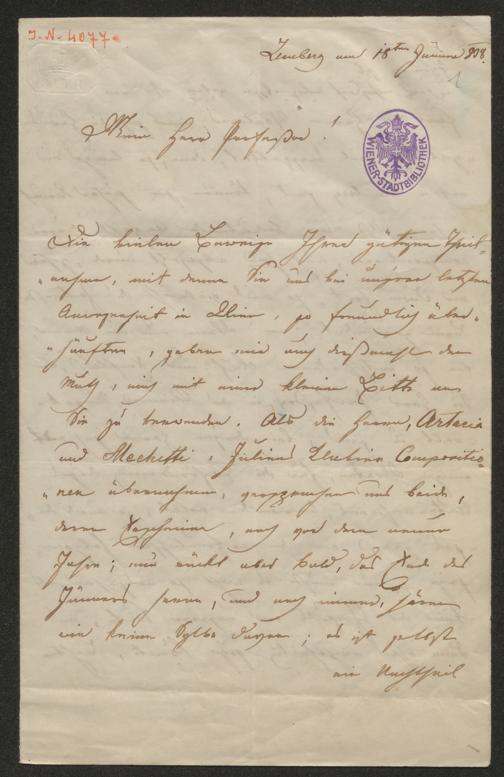 I.N. 4077
Lemberg am 18ten Jänner 838.
1
Mein Herr Professor!
WIENER-STADTBIBLIOTHEK
Die vielen Beweise Ihres gütigen
mit denen Sie uns bei unserer letzten
Anwesenheit in Wien, so freundlich über-
häuften, geben mir auch dießmahl den
Muth, mich mit einer kleinen Bitte an
Sie zu verwenden. Als die Herrn, Artaria
und Mechetti, Julians Compositio-
nen übernahmen, versprachen uns beide,
deren Erscheinen, noch vor dem neuen
Jahre; nun rückt aber bald, das Ende des
Jänners heran, und noch immer, hören
wir keine Sylbe davon; es ist selbst
ein Nachtheil